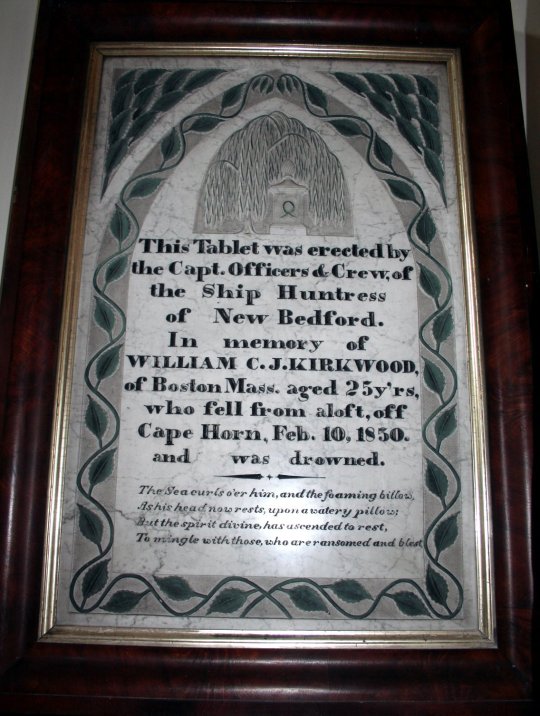 This Tablet was erected by
the Capt. Officers & Crew, of
the Ship Huntress
of New Bedford.
In memory of
WILLIAM C. J. KIRKWOOD,
of Boston Mass. aged 25 y'rs,
who fell from aloft, off
Cape Horn, Feb. 10, 1850.
and was drowned.
The Sea curls o'er him, and the foaming billow,
As his head now rests, upon a watery pillow;
But the spirit divine, has ascended to rest,
To mingle with those, who are ransomed and blest